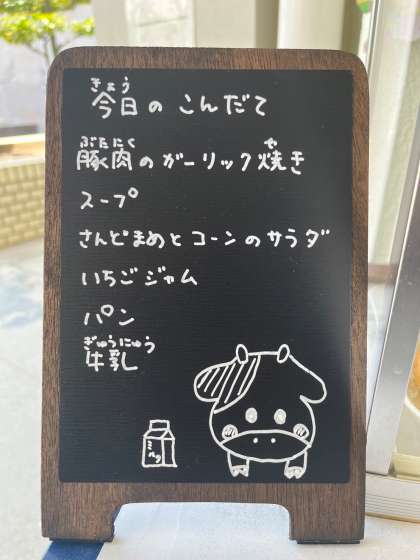 きょう
今日のこんだて
ぶたにく や
豚肉のガーリック焼き
スープ
さんどまめとコーンのサラダ
いちごジャム
パン
ぎゅうにゅう
牛乳
ミルク